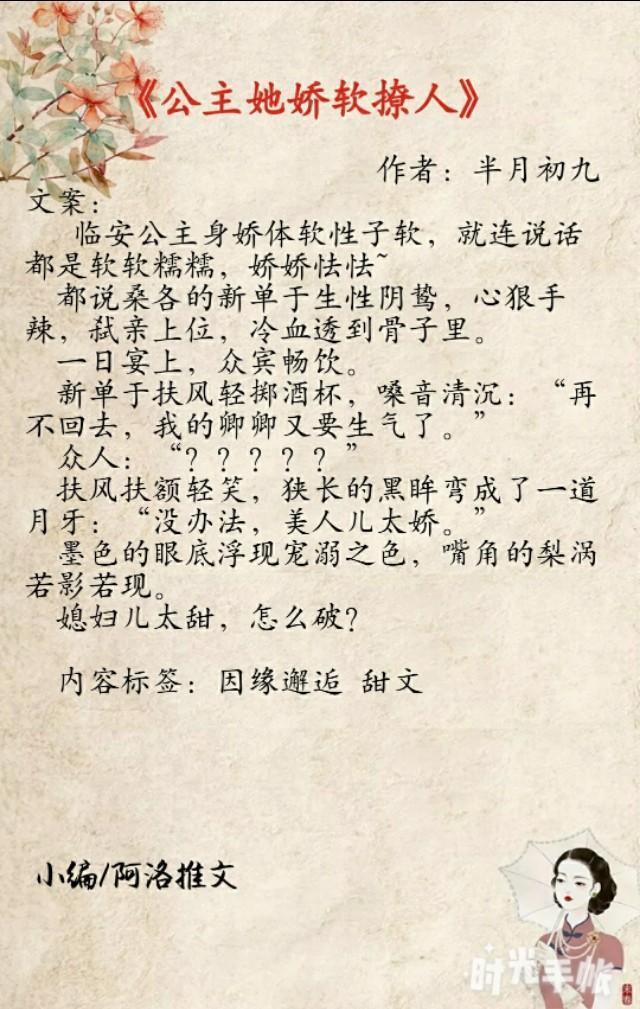 《公主她娇软撩人》
作者：半月初九
文案：
临安公主身娇体软性子软，就连说话
都是软软糯糯，娇娇怯怯~
都说桑各的新单于生性阴鸷，心狠手
辣，弑亲上位，冷血透到骨子里。
一日宴上，众宾畅饮。
新单于扶风轻掷酒杯，嗓音清沉：“再
不回去，我的卿卿又要生气了。”
众人：“？？？？？”
扶风扶额轻笑，狭长的黑眸弯成了一道
月牙：“没办法，美人儿太娇。”
墨色的眼底浮现宠溺之色，嘴角的梨涡
若影若现。
媳妇儿太甜，怎么破？
内容标签：因缘邂逅 甜文
小编/阿洛推文
时光手帐